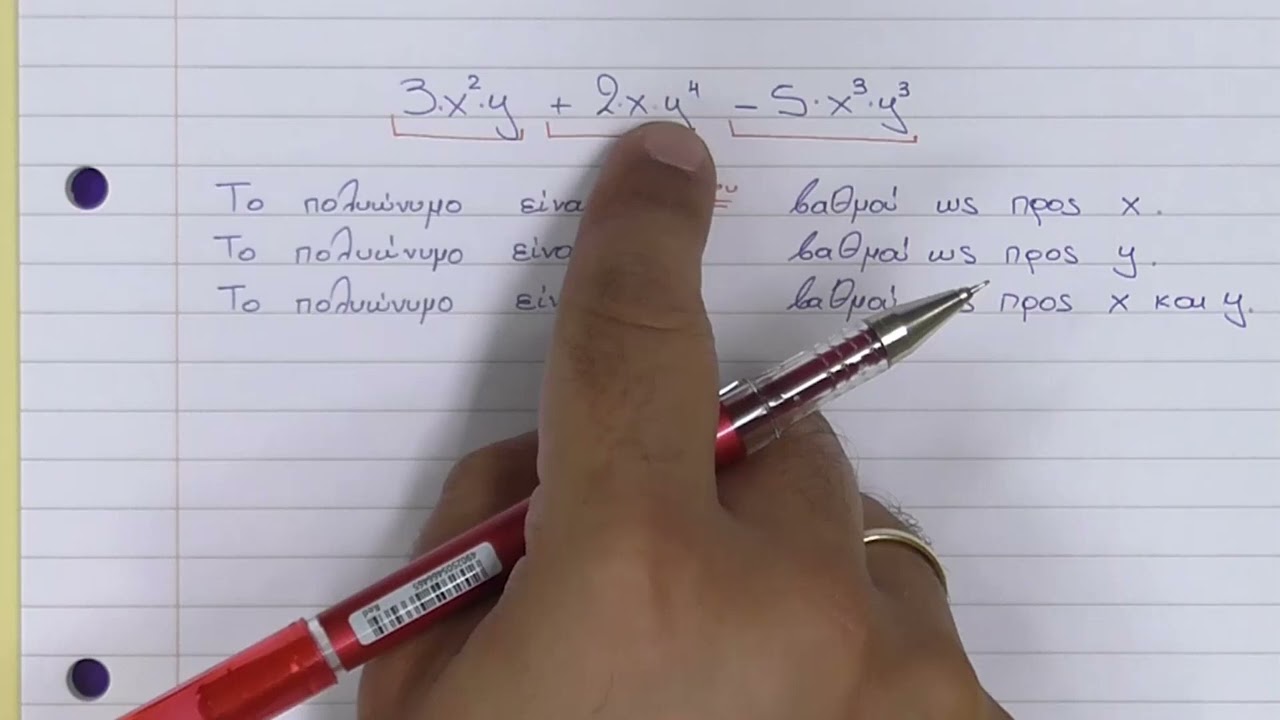 3·x²·y + 2·x·y⁴ - 5·x³·y³
Το πολυώνυμο είνα ου βαθμού ως προς x.
Το πολυώνυμο είνα βαθμού ως προς y.
Το πολυώνυμο είν βαθμού ς προς x και y.
4902505466465
Red